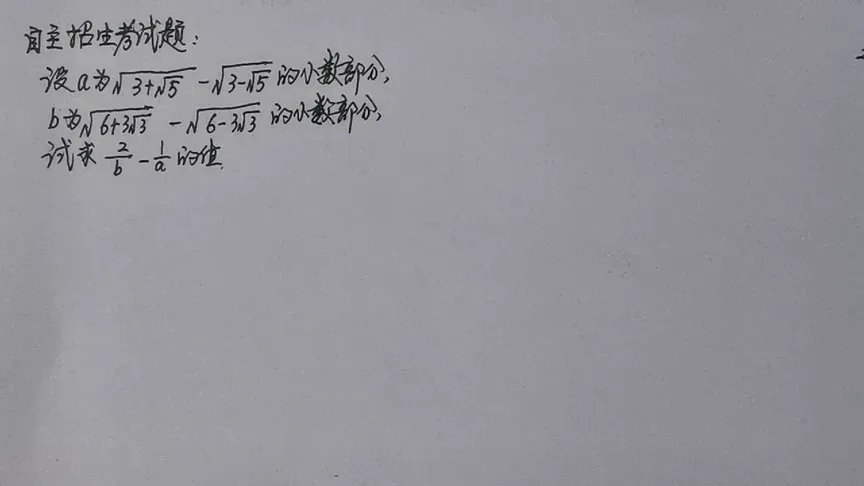 自主招生考试题:
设a为√(3+√5) -√(3-√5) 的小数部分,
b为√(6+3√3) -√(6-3√3) 的小数部分,
试求 2/b - 1/a 的值.